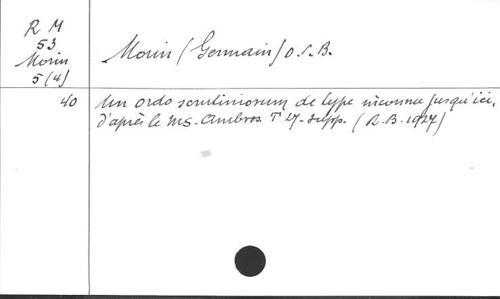 R M
53
Morin
5(4)
Morin (Germain) O.S.B.
40
Un ordo scrutiniorum de type inconnu jusqu'ici,
d'après le ms. Ambros. T 27. supp. (R.B. 1927)